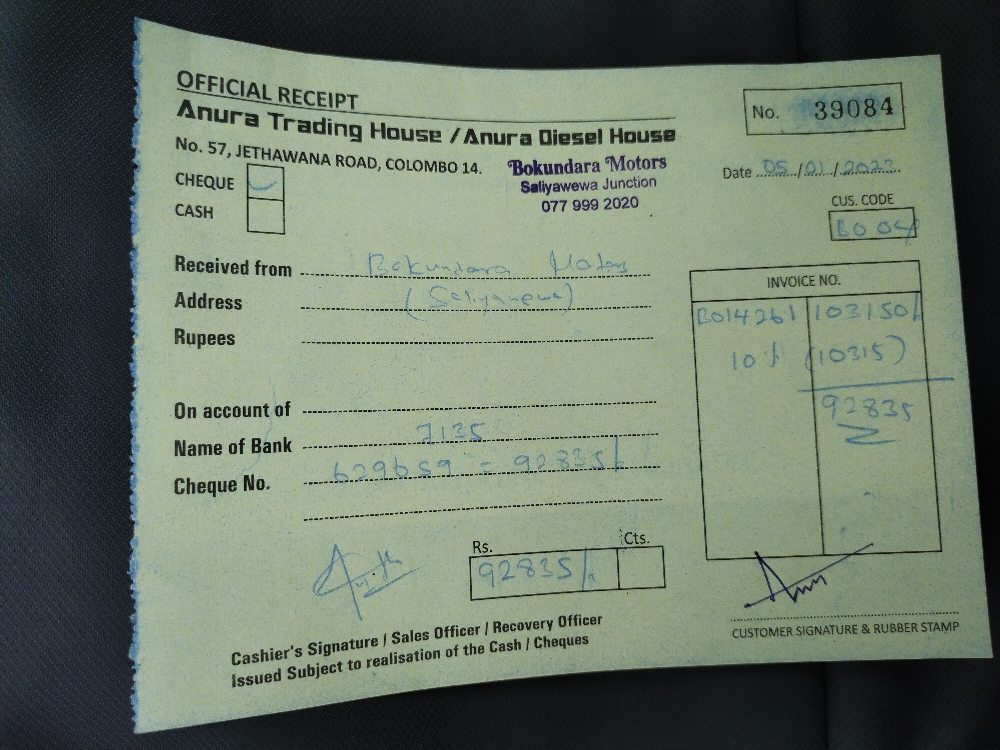 OFFICIAL RECEIPT
Anura Trading House / Anura Diesel House
No. 39084
No. 57, JETHAWANA ROAD, COLOMBO 14.
Bokundara Motors
Saliyawewa Junction
077 999 2020
Date 05/01/2023
CHEQUE
CASH
CUS. CODE
BO 04
Received from Bokundara Motors
Address (Saliyawewa)
Rupees
INVOICE NO.
B014261 103150/-
10% (10315)
92835
On account of
Name of Bank 7135
Cheque No. 629659 = 92835/-
Rs. Cts.
92835/-
Cashier's Signature / Sales Officer / Recovery Officer
Issued Subject to realisation of the Cash / Cheques
CUSTOMER SIGNATURE & RUBBER STAMP